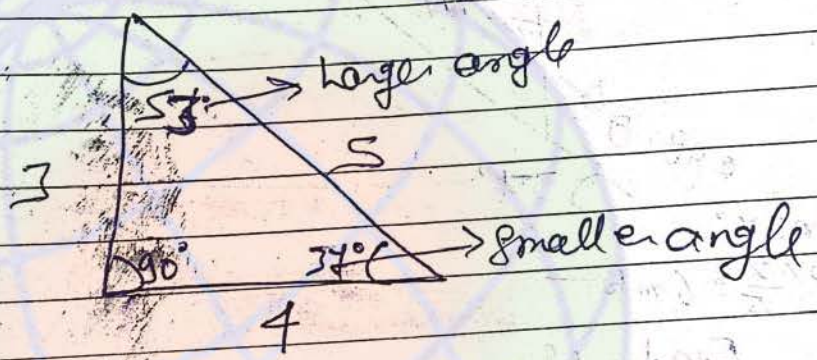 53° → Larger angle
3
5
90°
37° → Smaller angle
4